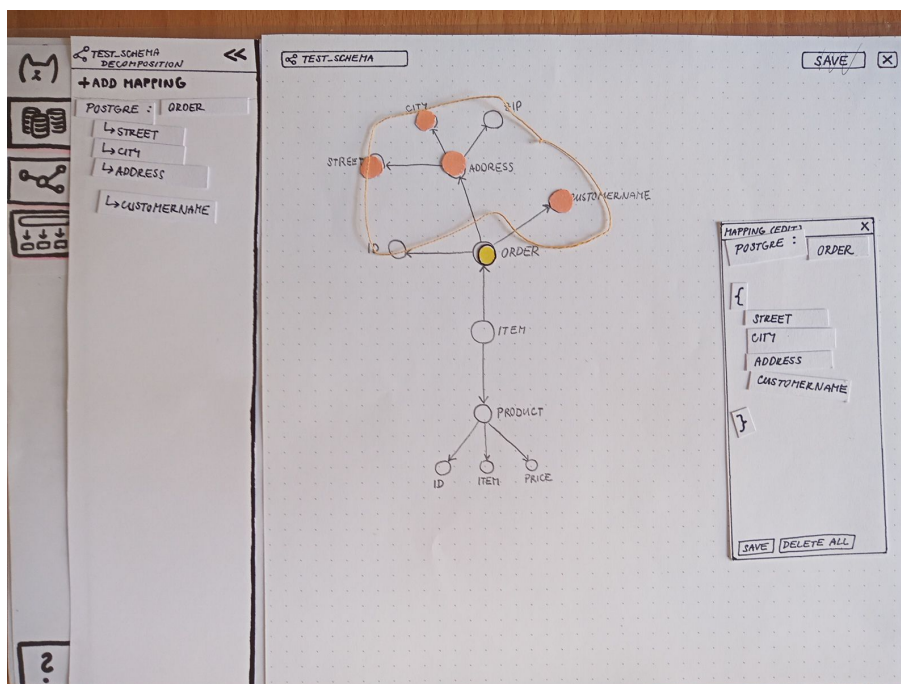 TEST_SCHEMA
DECOMPOSITION
<<
+ADD MAPPING
POSTGRE : ORDER
↳STREET
↳CITY
↳ADDRESS
↳CUSTOMERNAME
?
TEST_SCHEMA
SAVE
X
CITY
ZIP
STREET
ADDRESS
CUSTOMERNAME
ID
ORDER
ITEM
PRODUCT
ID
ITEM
PRICE
MAPPING (EDIT)
X
POSTGRE : ORDER
{
STREET
CITY
ADDRESS
CUSTOMERNAME
}
SAVE
DELETE ALL